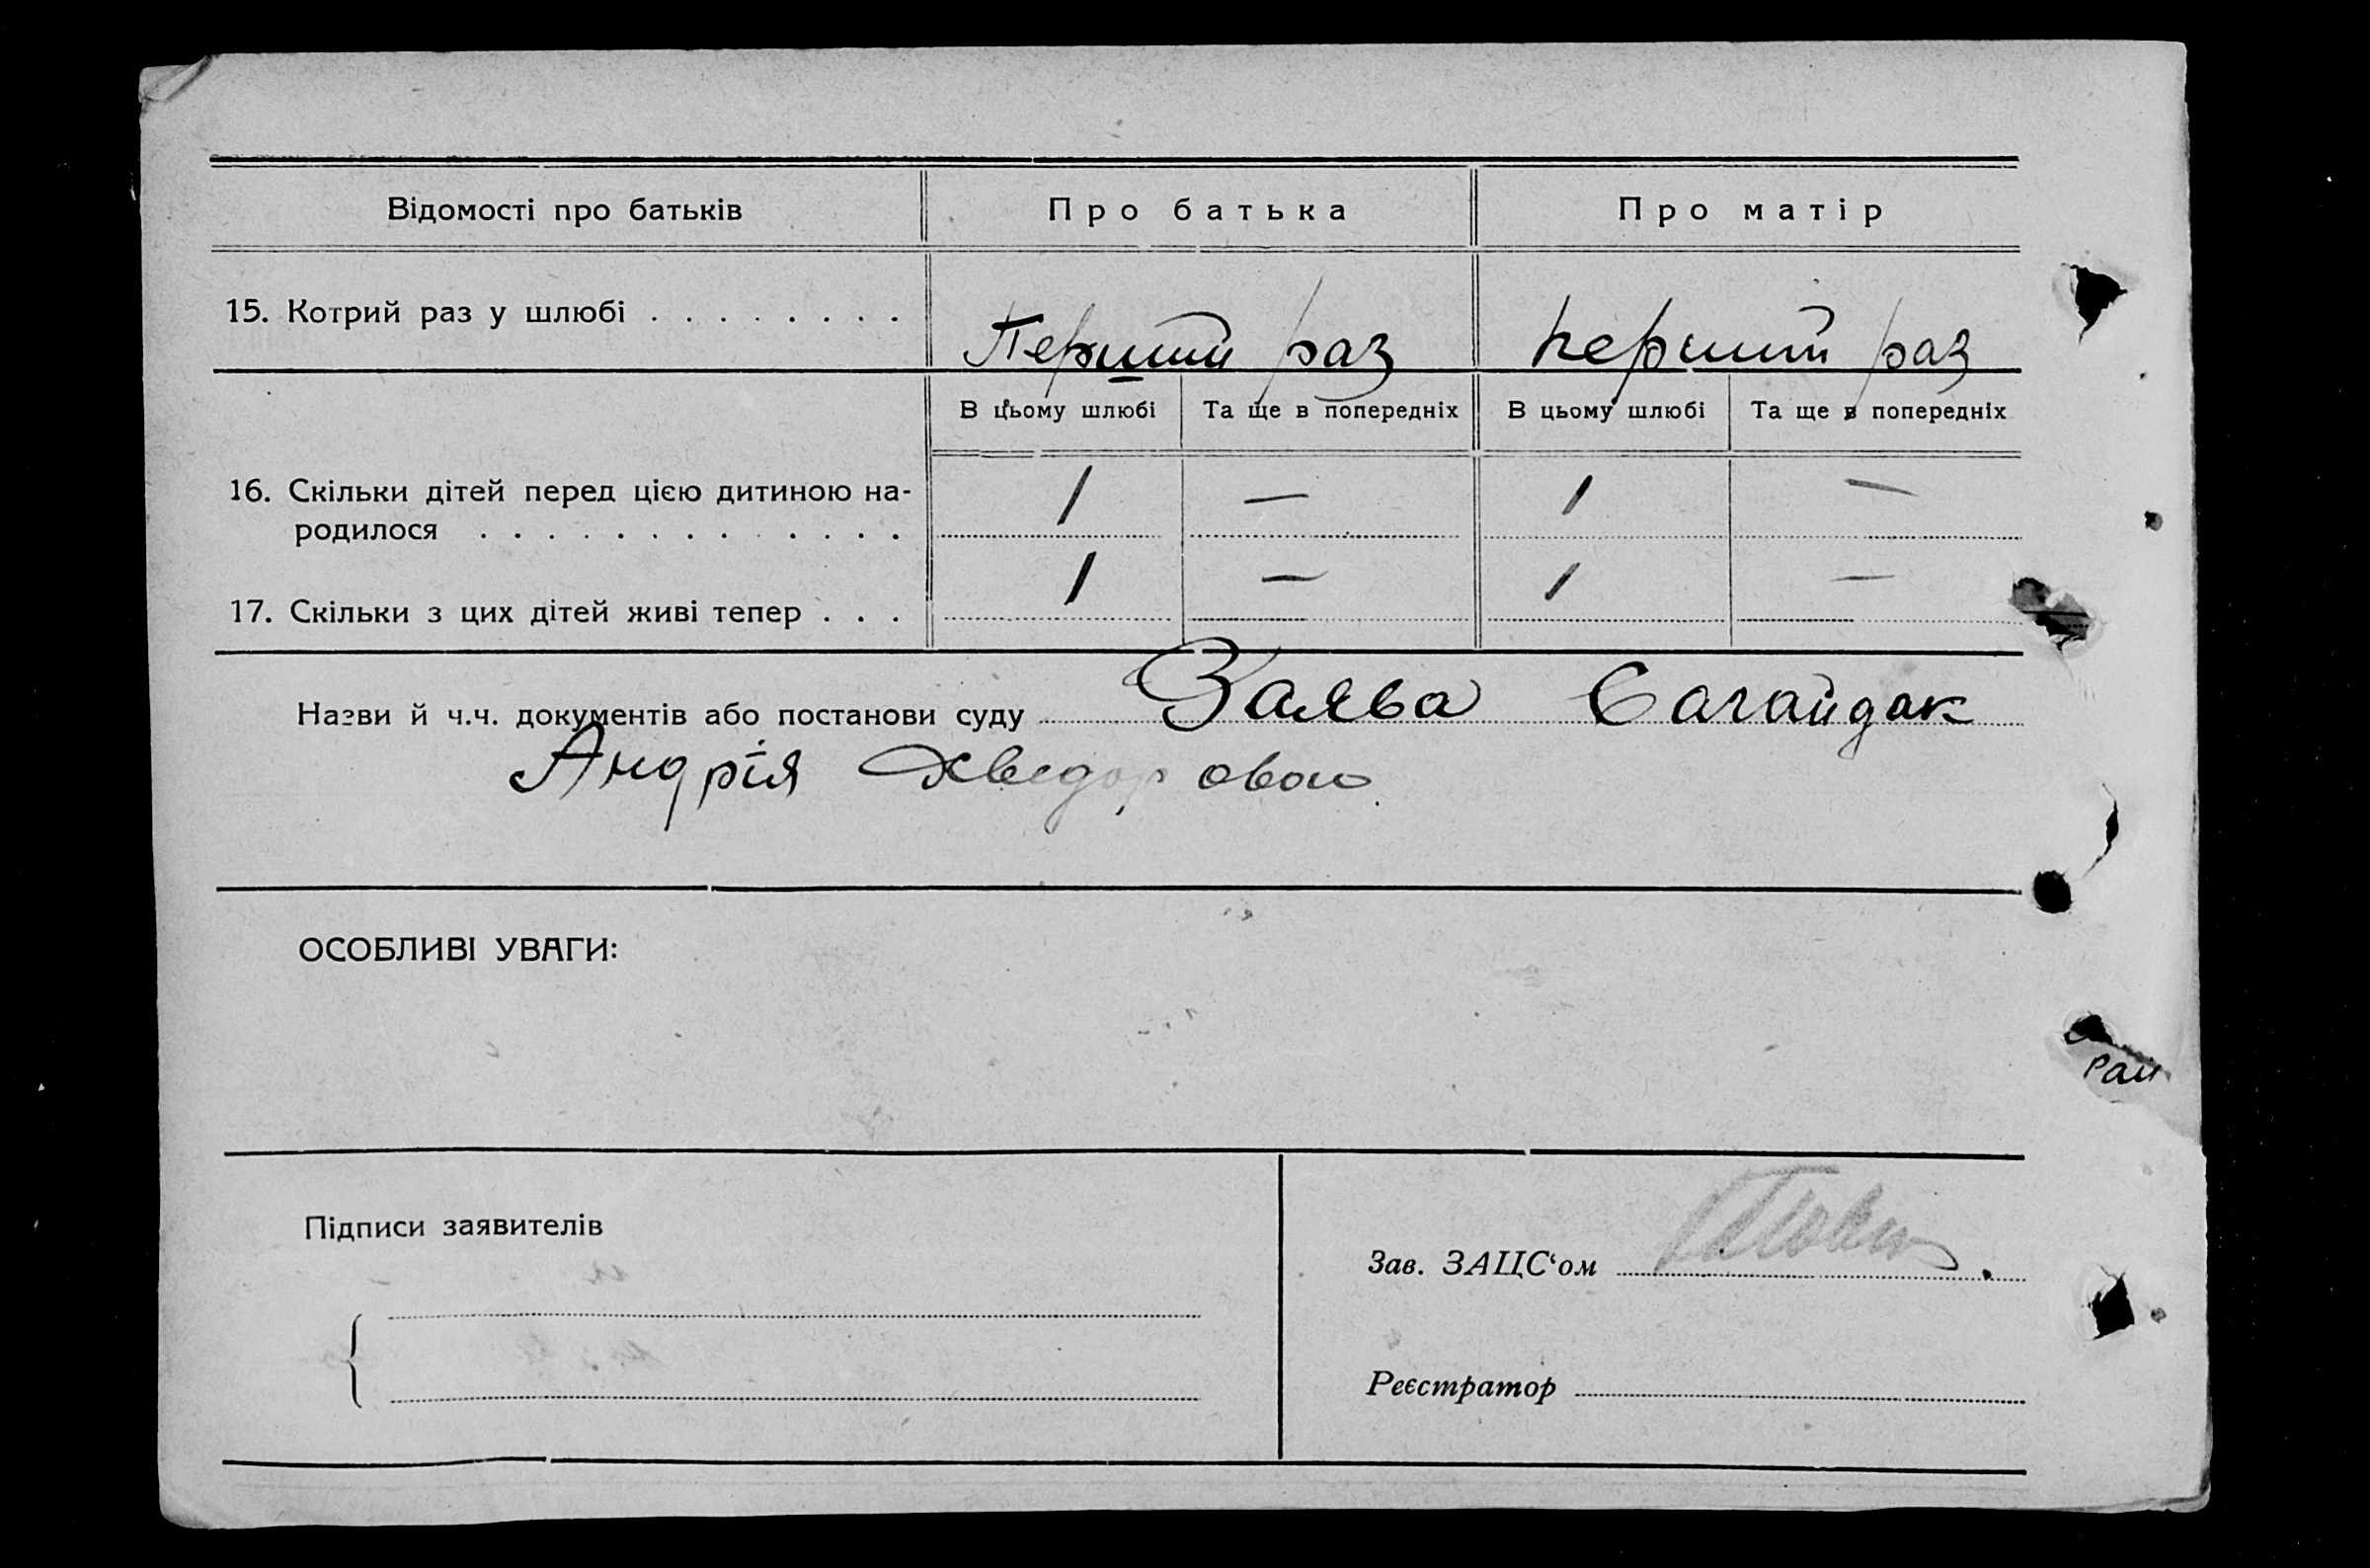 Відомості про батьків Про батька Про матір
15. Котрий раз у шлюбі . . . . . . . . Перший раз перший раз
В цьому шлюбі Та ще в попередніх В цьому шлюбі Та ще в попередніх
16. Скільки дітей перед цією дитиною на- 1 — 1 —
родилося . . . . . . . . . . . . .
17. Скільки з цих дітей живі тепер . . . 1 — 1 —
Назви й ч.ч. документів або постанови суду Заява Сагайдак
Андрія Хведоровою
ОСОБЛИВІ УВАГИ:
Рай
Підписи заявителів
Зав. ЗАЦС‘ом
Реєстратор